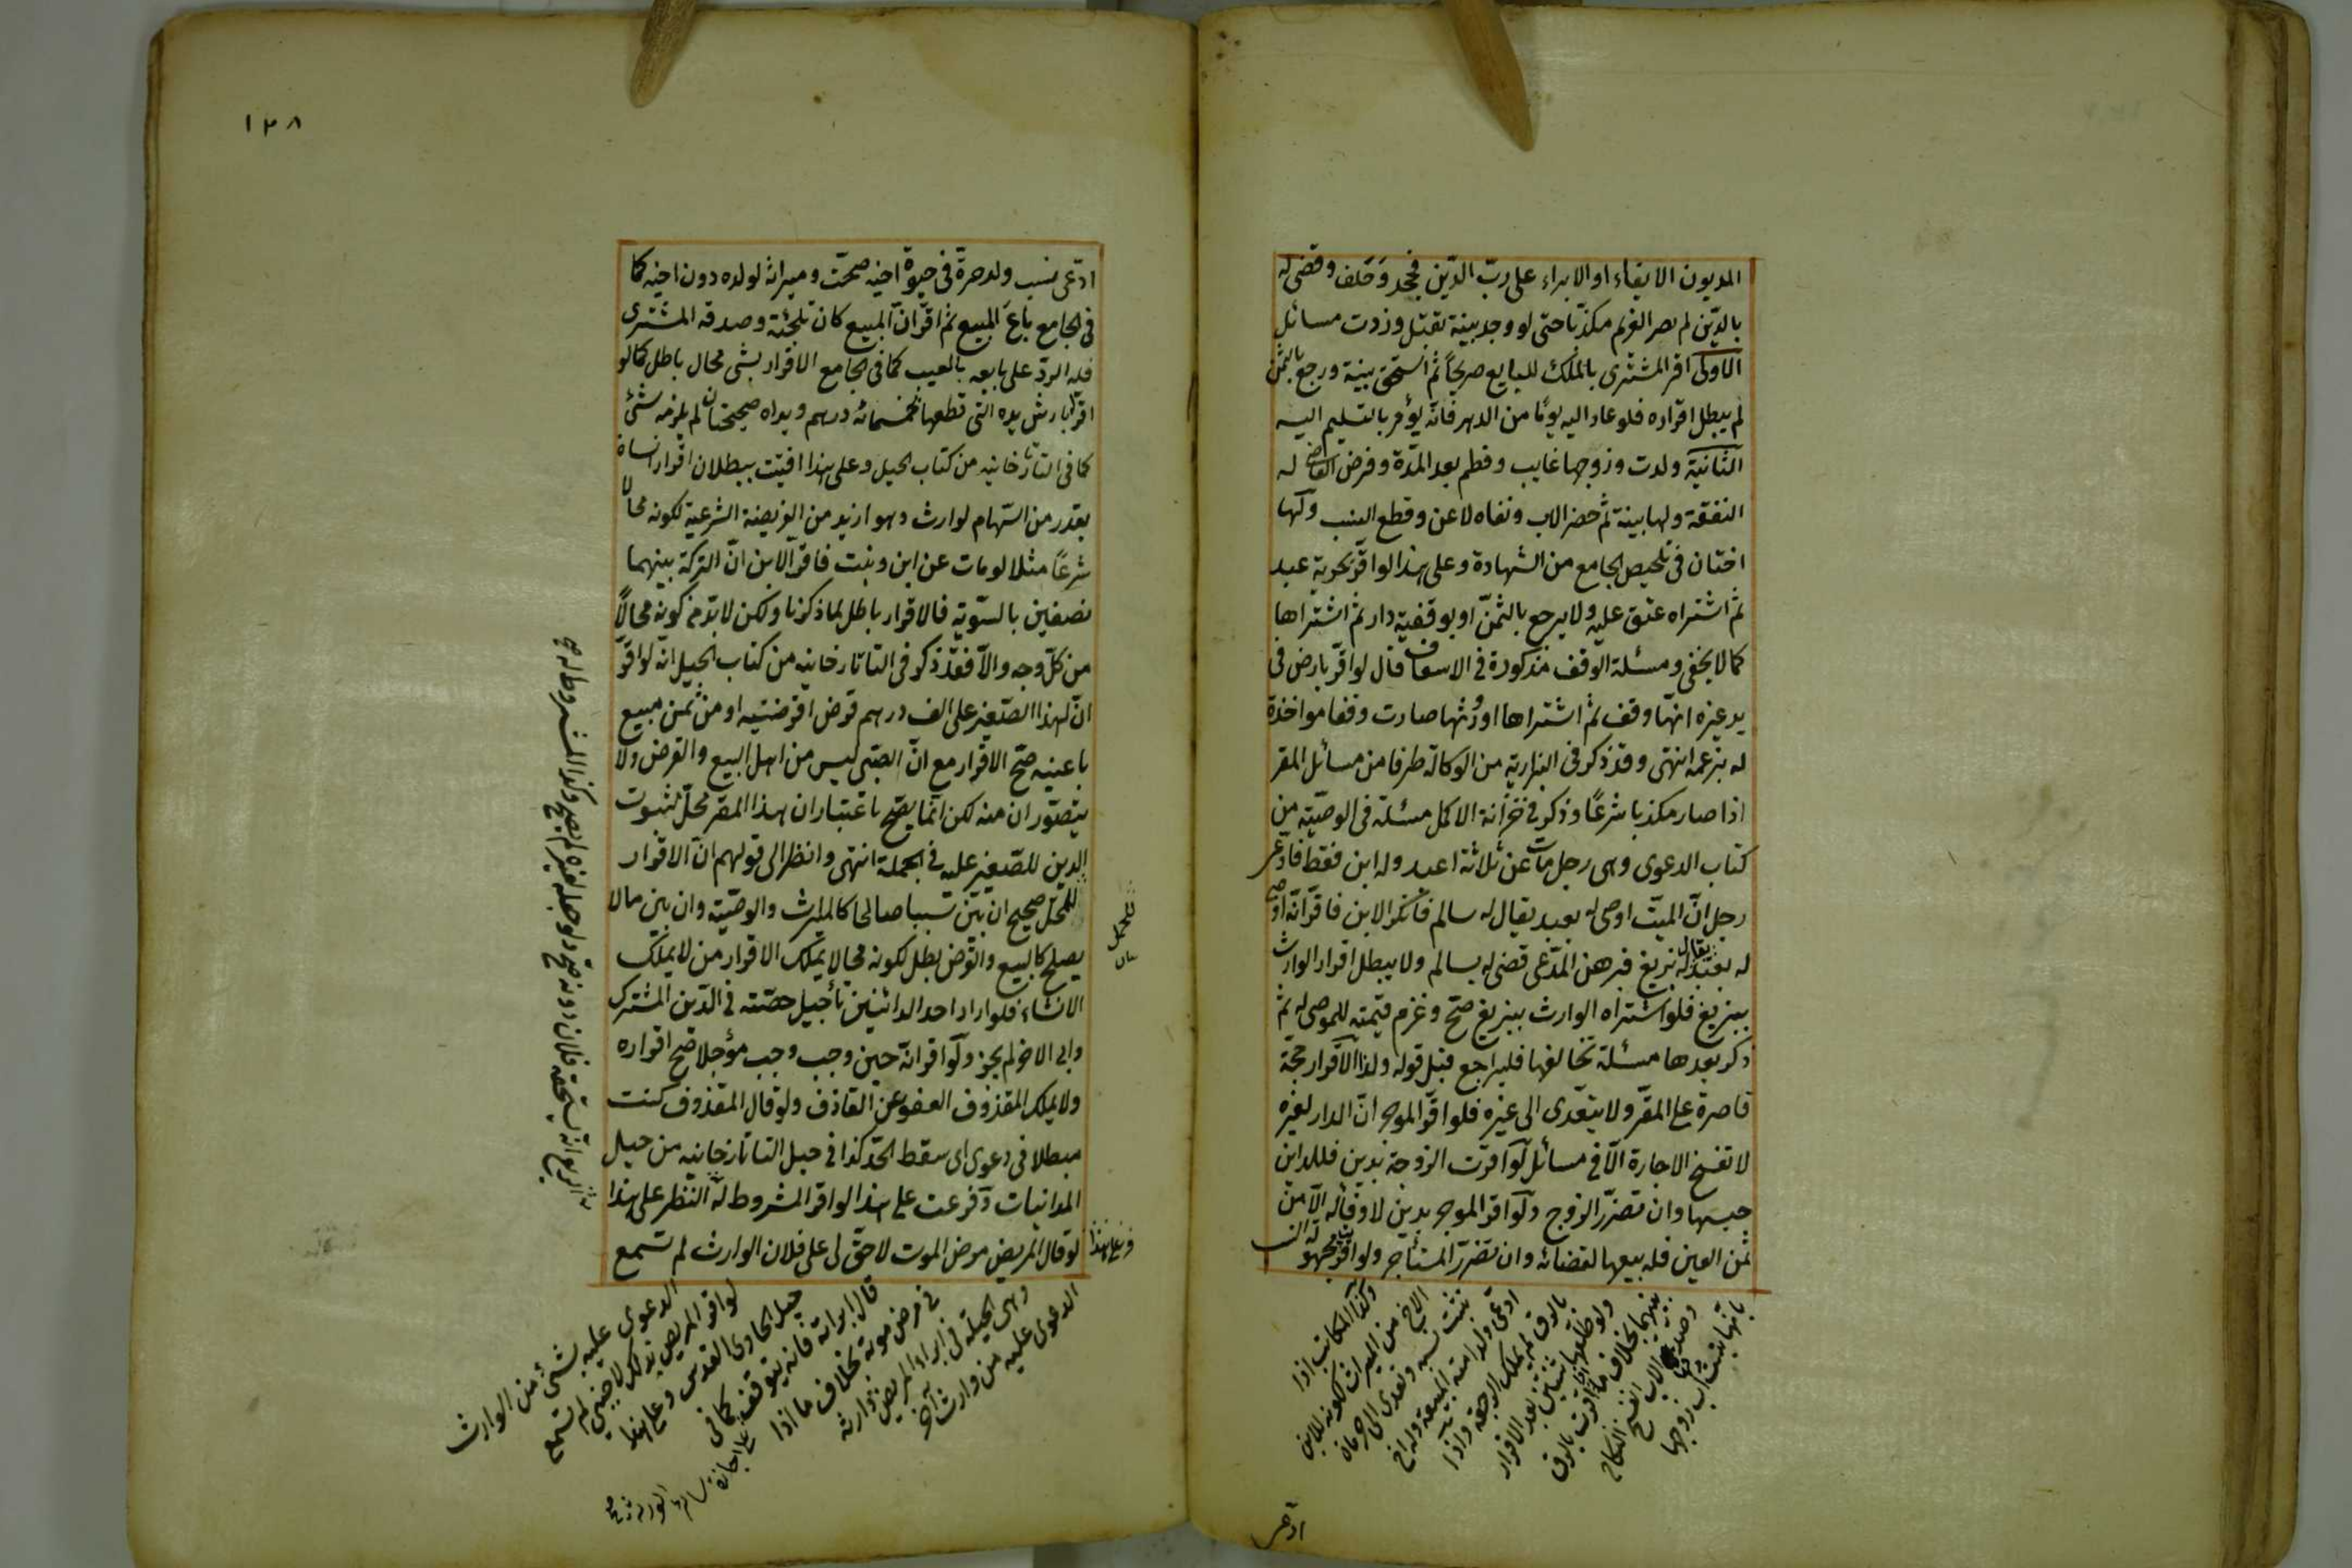 المديون الايفاء او الابراء على ربّ الدّين فجحد وحلف وقضى له
بالدّين لم يصر الغريم مكذبا حتى لو وجد بينة تقبل وزدت مسائل
الاولى اقر المشترى بالملك للبايع صريحاً ثم استحق ببينة ورجع بالثمن
لم يبطل اقراره فلو عاد اليه يومًا من الدهر فانّه يؤمر بالتسليم اليه
الثانية ولدت وزوجها غايب وفطم بعد المدّة وفرض القاضى له
النفقة ولها ببينة ثم حضر الاب ونفاه لاعن وقطع النسب ولها
اختان فى تلخيص الجامع من الشهادة وعلى هذا لو اقر بحرية عبد
ثم اشتراه عتق عليه ولا يرجع بالثمن او بوقفية دار ثم اشتراها
كما لا يخفى ومسئلة الوقف مذكورة فى الاسعاف قال لو اقرّ بارض فى
يد غيره انها وقف ثم اشتراها او ورثها صارت وقفا مواخذة
له بزعمه انتهى وقد ذكر فى البزازية من الوكالة طرفا من مسائل المقر
اذا صار مكذبا شرعًا وذكر فى خزانة الاكمل مسئلة فى الوصيّة من
كتاب الدعوى وهى رجل مات عن ثلاثة اعبد وله ابن فقط فادعى
رجل انّ الميّت اوصى له بعبد يقال له سالم فانكر الابن فاقرّ انّه اوصى
له بعبد يقال له بزيغ فبرهن المدّعى قضى له بسالم ولا يبطل اقرار الوارث
ببزيغ فلو اشتراه الوارث ببزيغ صحّ وغرم قيمته للموصى له ثم
ذكر بعدها مسئلة تخالفها فليراجع قبل قوله ولذا الاقرار حجّة
قاصرة على المقرّ ولا يتعدى الى غيره فلو اقرّ الموجر انّ الدار لغيره
لا تفسخ الاجارة الّا فى مسائل لو اقرّت الزوجة بدين فللداين
حبسها وان تضرّر الزوج ولو اقر الموجر بدين لا وفاء له الّا من
ثمن العين فله بيعها لقضائه وان تضرر المستأجر ولو اقرت مجهولة النسب
بانّها بنت اب زوجها
وصدقها الاب انفسخ النكاح
بينهما بخلاف ما اذا اقرت بالرق
ولو طلقها ثنتين بعد الاقرار
بالرق لم يملك الرجعة واذا
ادّعى ولد امته المبيعة وله اخ
يثبت نسبه وتعدى الى حرمان
الاخ من الميراث لكونه للابن
وكذا المكاتب اذا
ادعى
١٣٨
ادّعى نسب ولد حرة فى حيوة اخيه صحّت وميراثه لولده دون اخيه كما
فى الجامع باع المبيع ثم اقرّ انّ المبيع كان تلجئة وصدقه المشترى
فله الردّ على بايعه بالعيب كما فى الجامع الاقرار بشئ محال باطل كما لو
اقر بارش يده التى قطعها خمسمائة درهم ويداه صحيحتان لم يلزمه شئ
كما فى التاتارخانيه من كتاب الحيل وعلى هذا افتيت ببطلان اقرار انسان
بقدر من السّهام لوارث وهو ازيد من الفريضة الشرعية لكونه محالا
شرعًا مثلا لو مات عن ابن وبنت فاقرّ الابن انّ التركة بينهما
نصفين بالسّوية فالاقرار باطل لما ذكرنا ولكن لا بدّ من كونه محالًا
من كلّ وجه والّا فقد ذكر فى التاتارخانيه من كتاب الحيل انّه لو اقرّ
انّ لهذا الصّغير على الف درهم قرض اقرضنيه او من ثمن مبيع
باعنيه صحّ الاقرار مع انّ الصّبى ليس من اهل البيع والقرض ولا
يتصوّر ان منه لكن انّما يصحّ باعتبار ان هذا المقر محلّ لثبوت
الدين للصّغير عليه فى الجملة انتهى وانظر الى قولهم انّ الاقرار
للحمل صحيح ان بيّن سببا صالحا كالميراث والوصيّة وان بيّن ما لا
يصلح كالبيع والقرض بطل لكونه محالا يملك الاقرار من لا يملك
الانشاء فلو اراد احد الدائنين تأجيل حصّته فى الدّين المشترك
وابى الاخر لم يجز ولو اقر انّه حين وجب وجب مؤجلا صح اقراره
ولا يملك المقذوف العفو عن القاذف ولو قال المقذوف كنت
مبطلا فى دعوى سقط الحدّ كذا فى حيل التاتارخانيه من حيل
المداينات وفرعت على هذا لو اقر المشروط له النظر على هذا
لو قال المريض مرض الموت لا حقّ لى على فلان الوارث لم تسمع
الدعوى عليه من وارث آخر
وهى الحيلة فى ابراء المريض وارثه
فى مرض موته بخلاف ما اذا
قال ابرأته فانه يتوقف كما فى
حيل الحاوى القدسى وعلى هذا
لو اقر المريض بذلك لاجنبى لم تسمع
الدعوى عليه بشئ من الوارث
للحمل
وعلى هذا